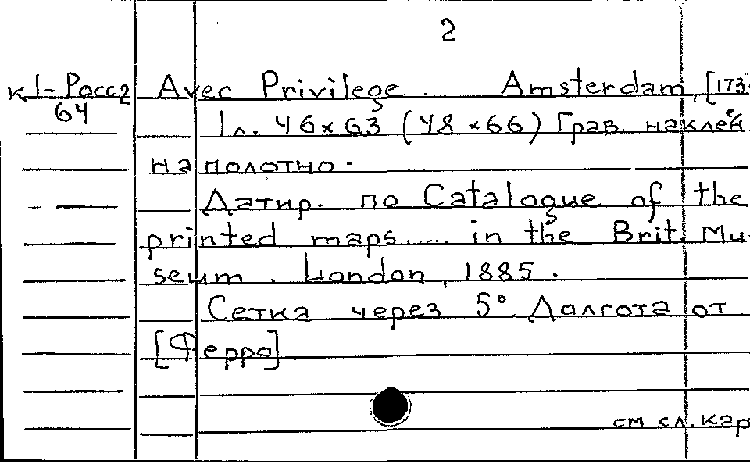 2
к 1-Росс2 Avec Privilege. Amsterdam, [173
64 1 л. 46×63 (48×66) Грав. наклей
на полотно.
Датир. по Catalogue of the
printed maps..... in the Brit. Mu-
seum. London, 1885.
Сетка через 5° Долгота от
[Ферро]
см сл. кар